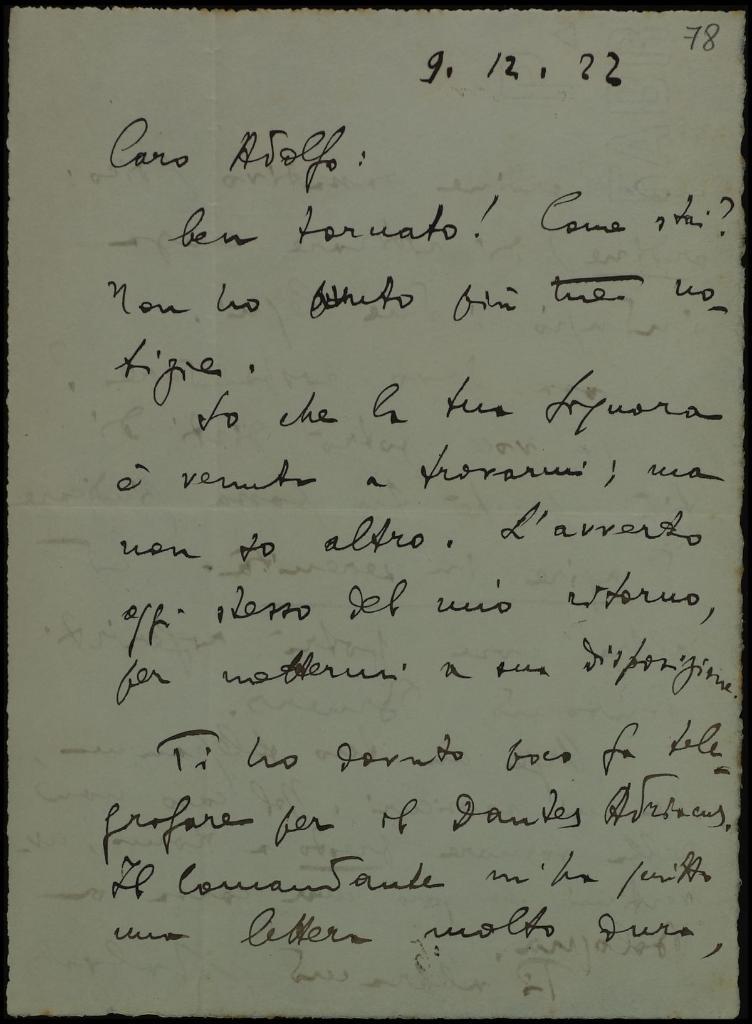 78
9. 12. 22
Caro Adolfo:
ben tornato! Come stai?
Non ho avuto più tue no-
tizie.
So che la tua Signora
è venuta a trovarmi; ma
non so altro. L'avverto
oggi stesso del mio ritorno,
per mettermi a sua disposizione.
Ti ho dovuto poco fa tele-
grafare per il Dantes Adriacus.
Il Comandante m'ha scritto
una lettera molto dura,